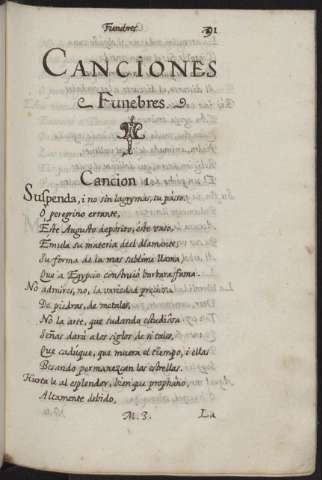 Funebres. 91
CANCIONES
Funebres.
Cancion 1.
Suspenda, i no sin lagrymas, tu passo,
O peregrino errante,
Este Augusto deposito, este vaso,
Emula su materia del diamante,
Su forma de la mas sublime llama,
Que a Egypcio construiò barbara fama.
No admires, no, la variedad preciosa
De piedras, de metales,
No la arte, que sudando estudiosa
Señas darà a los siglos de si tales,
Que caduque, que muera el tiempo, i ellas
Besando permanezcan las estrellas.
Hurtale al esplendor, bien que prophano,
Altamente debido,
M. 3. La